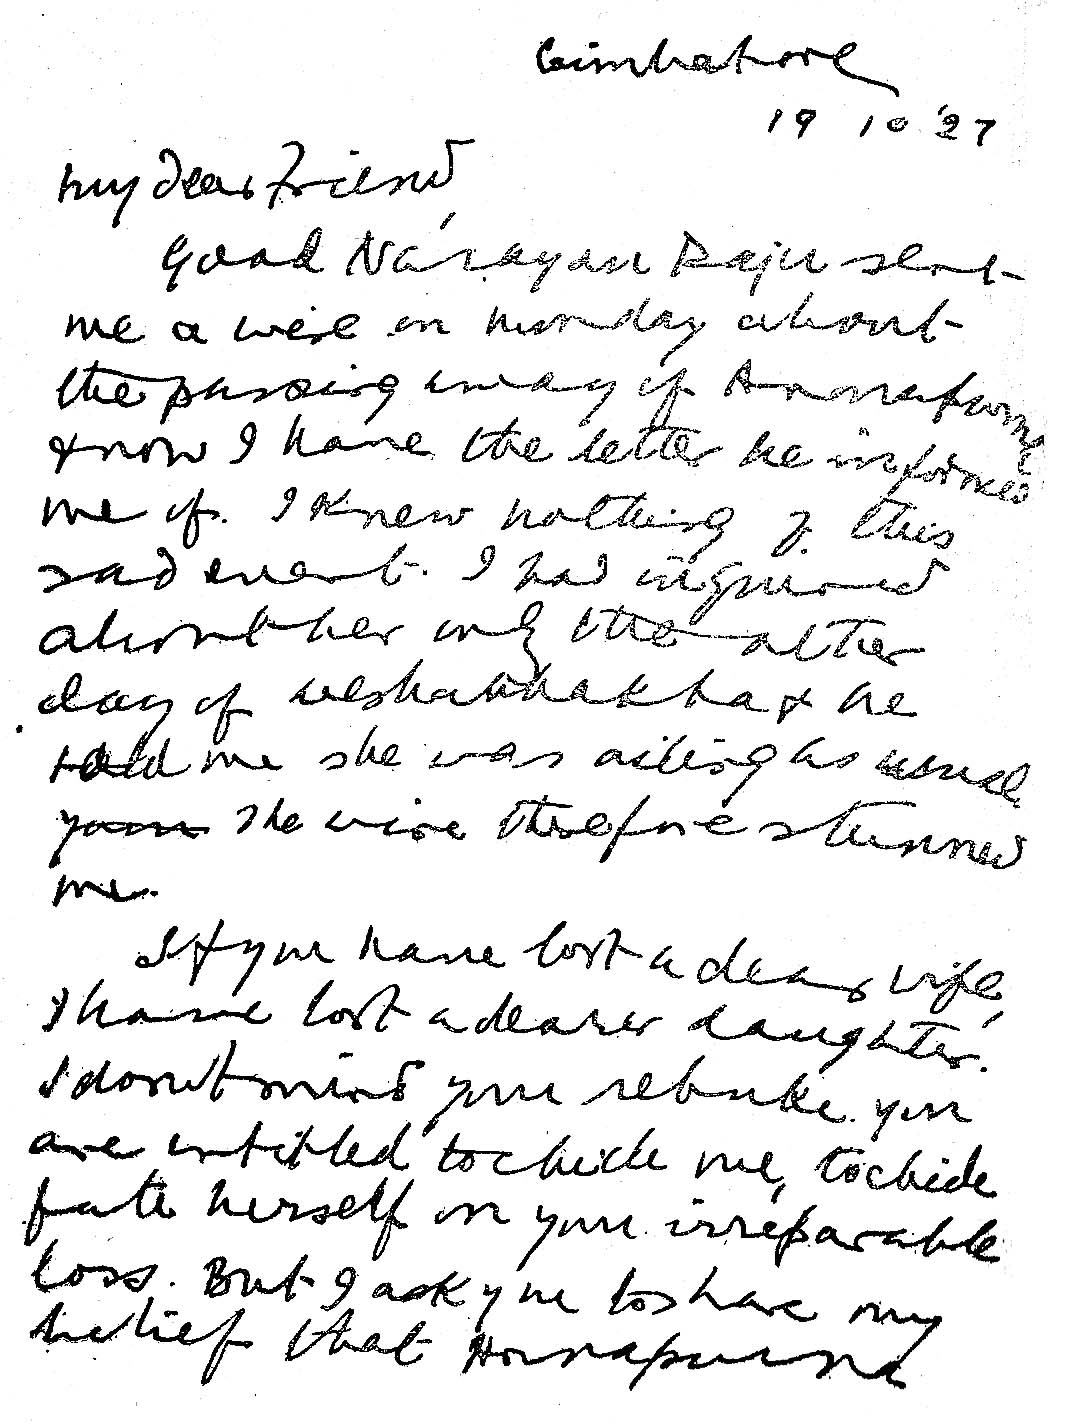 Coimbatore
19 10 '27
My dear Friend,
Good Narayan Raju sent
me a wire on Monday about
the passing away of Annapurna
& now I have the letter he informed
me of. I knew nothing of this
sad event. I had inquired
about her only the other
day of & he
told me she was ailing as usual.
The wire therefore stunned
me.
If you have lost a dear wife,
I have lost a dearer daughter.
I don't mind your rebuke. You
are entitled to chide me, to chide
fate herself on your irreparable
loss. But I ask you to share my
belief that Annapurna